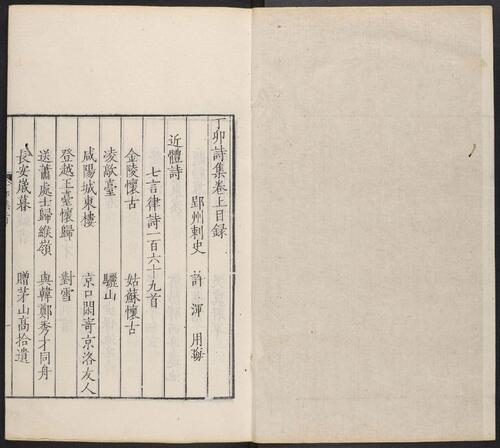 丁卯詩集卷上目錄
郢州刺史 許渾 用晦
近體詩
七言律詩一百六十九首
金陵懷古 姑蘇懷古
凌歊臺 驪山
咸陽城東樓 京口閑寄京洛友人
登越王臺懷歸 對雪
送蕭處士歸緱嶺 與韓鄭秀才同舟
長安歲暮 贈茅山高拾遺